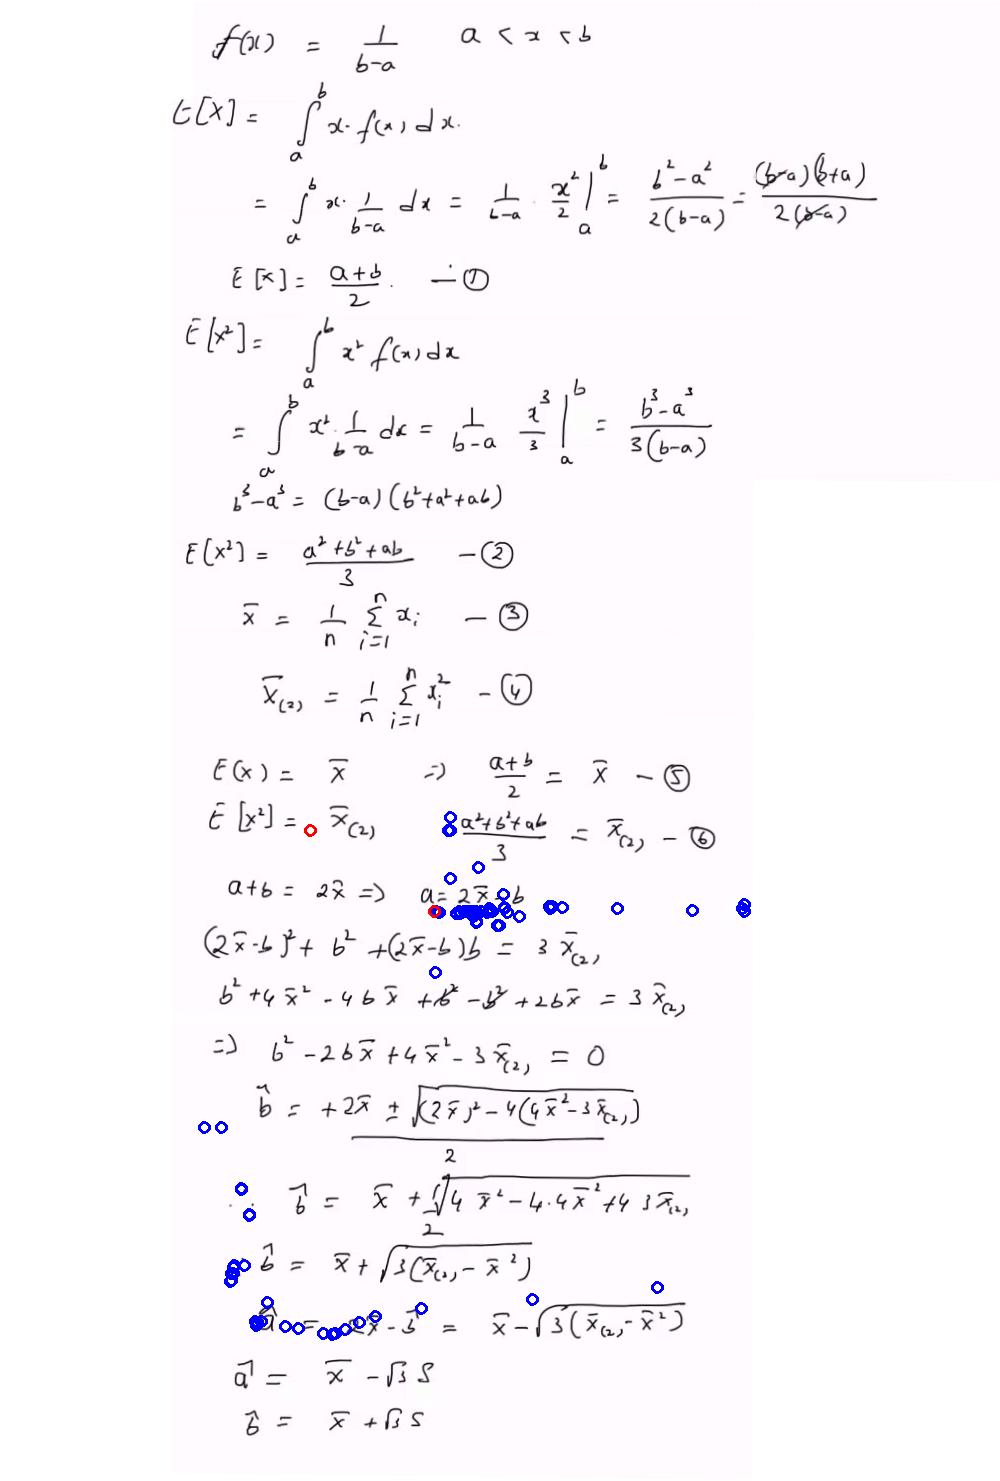 f(x) = 1/(b-a)   a < x < b
E[X] = ∫_a^b x· f(x) dx.
= ∫_a^b x· 1/(b-a) dx = 1/(b-a) · x²/2 |_a^b = (b²-a²)/(2(b-a)) = ((b-a)(b+a))/(2(b-a))
E[X] = (a+b)/2 . — ①
E[X²] = ∫_a^b x² f(x) dx
= ∫_a^b x² · 1/(b-a) dx = 1/(b-a) x³/3 |_a^b = (b³-a³)/(3(b-a))
b³-a³ = (b-a)(b²+a²+ab)
E[X²] = (a²+b²+ab)/3 — ②
x̄ = 1/n Σ_{i=1}^n x_i — ③
x̄_(2) = 1/n Σ_{i=1}^n x_i² — ④
E(x) = x̄ => (a+b)/2 = x̄ — ⑤
E[x²] = x̄_(2)   (a²+b²+ab)/3 = x̄_(2) — ⑥
a+b = 2x̄ => a = 2x̄-b
(2x̄-b)² + b² + (2x̄-b)b = 3 x̄_(2)
b² + 4x̄² - 4bx̄ + b² - b² + 2bx̄ = 3 x̄_(2)
=> b² - 2bx̄ + 4x̄² - 3x̄_(2) = 0
b̂ = (+2x̄ ± √((2x̄)² - 4(4x̄² - 3x̄_(2))))/2
b̂ = x̄ + √(4x̄² - 4·4x̄² + 4 3x̄_(2))/2
b̂ = x̄ + √(3(x̄_(2) - x̄²))
â = 2x̄ - b̂ = x̄ - √(3(x̄_(2) - x̄²))
â = x̄ - √3 S
b̂ = x̄ + √3 S